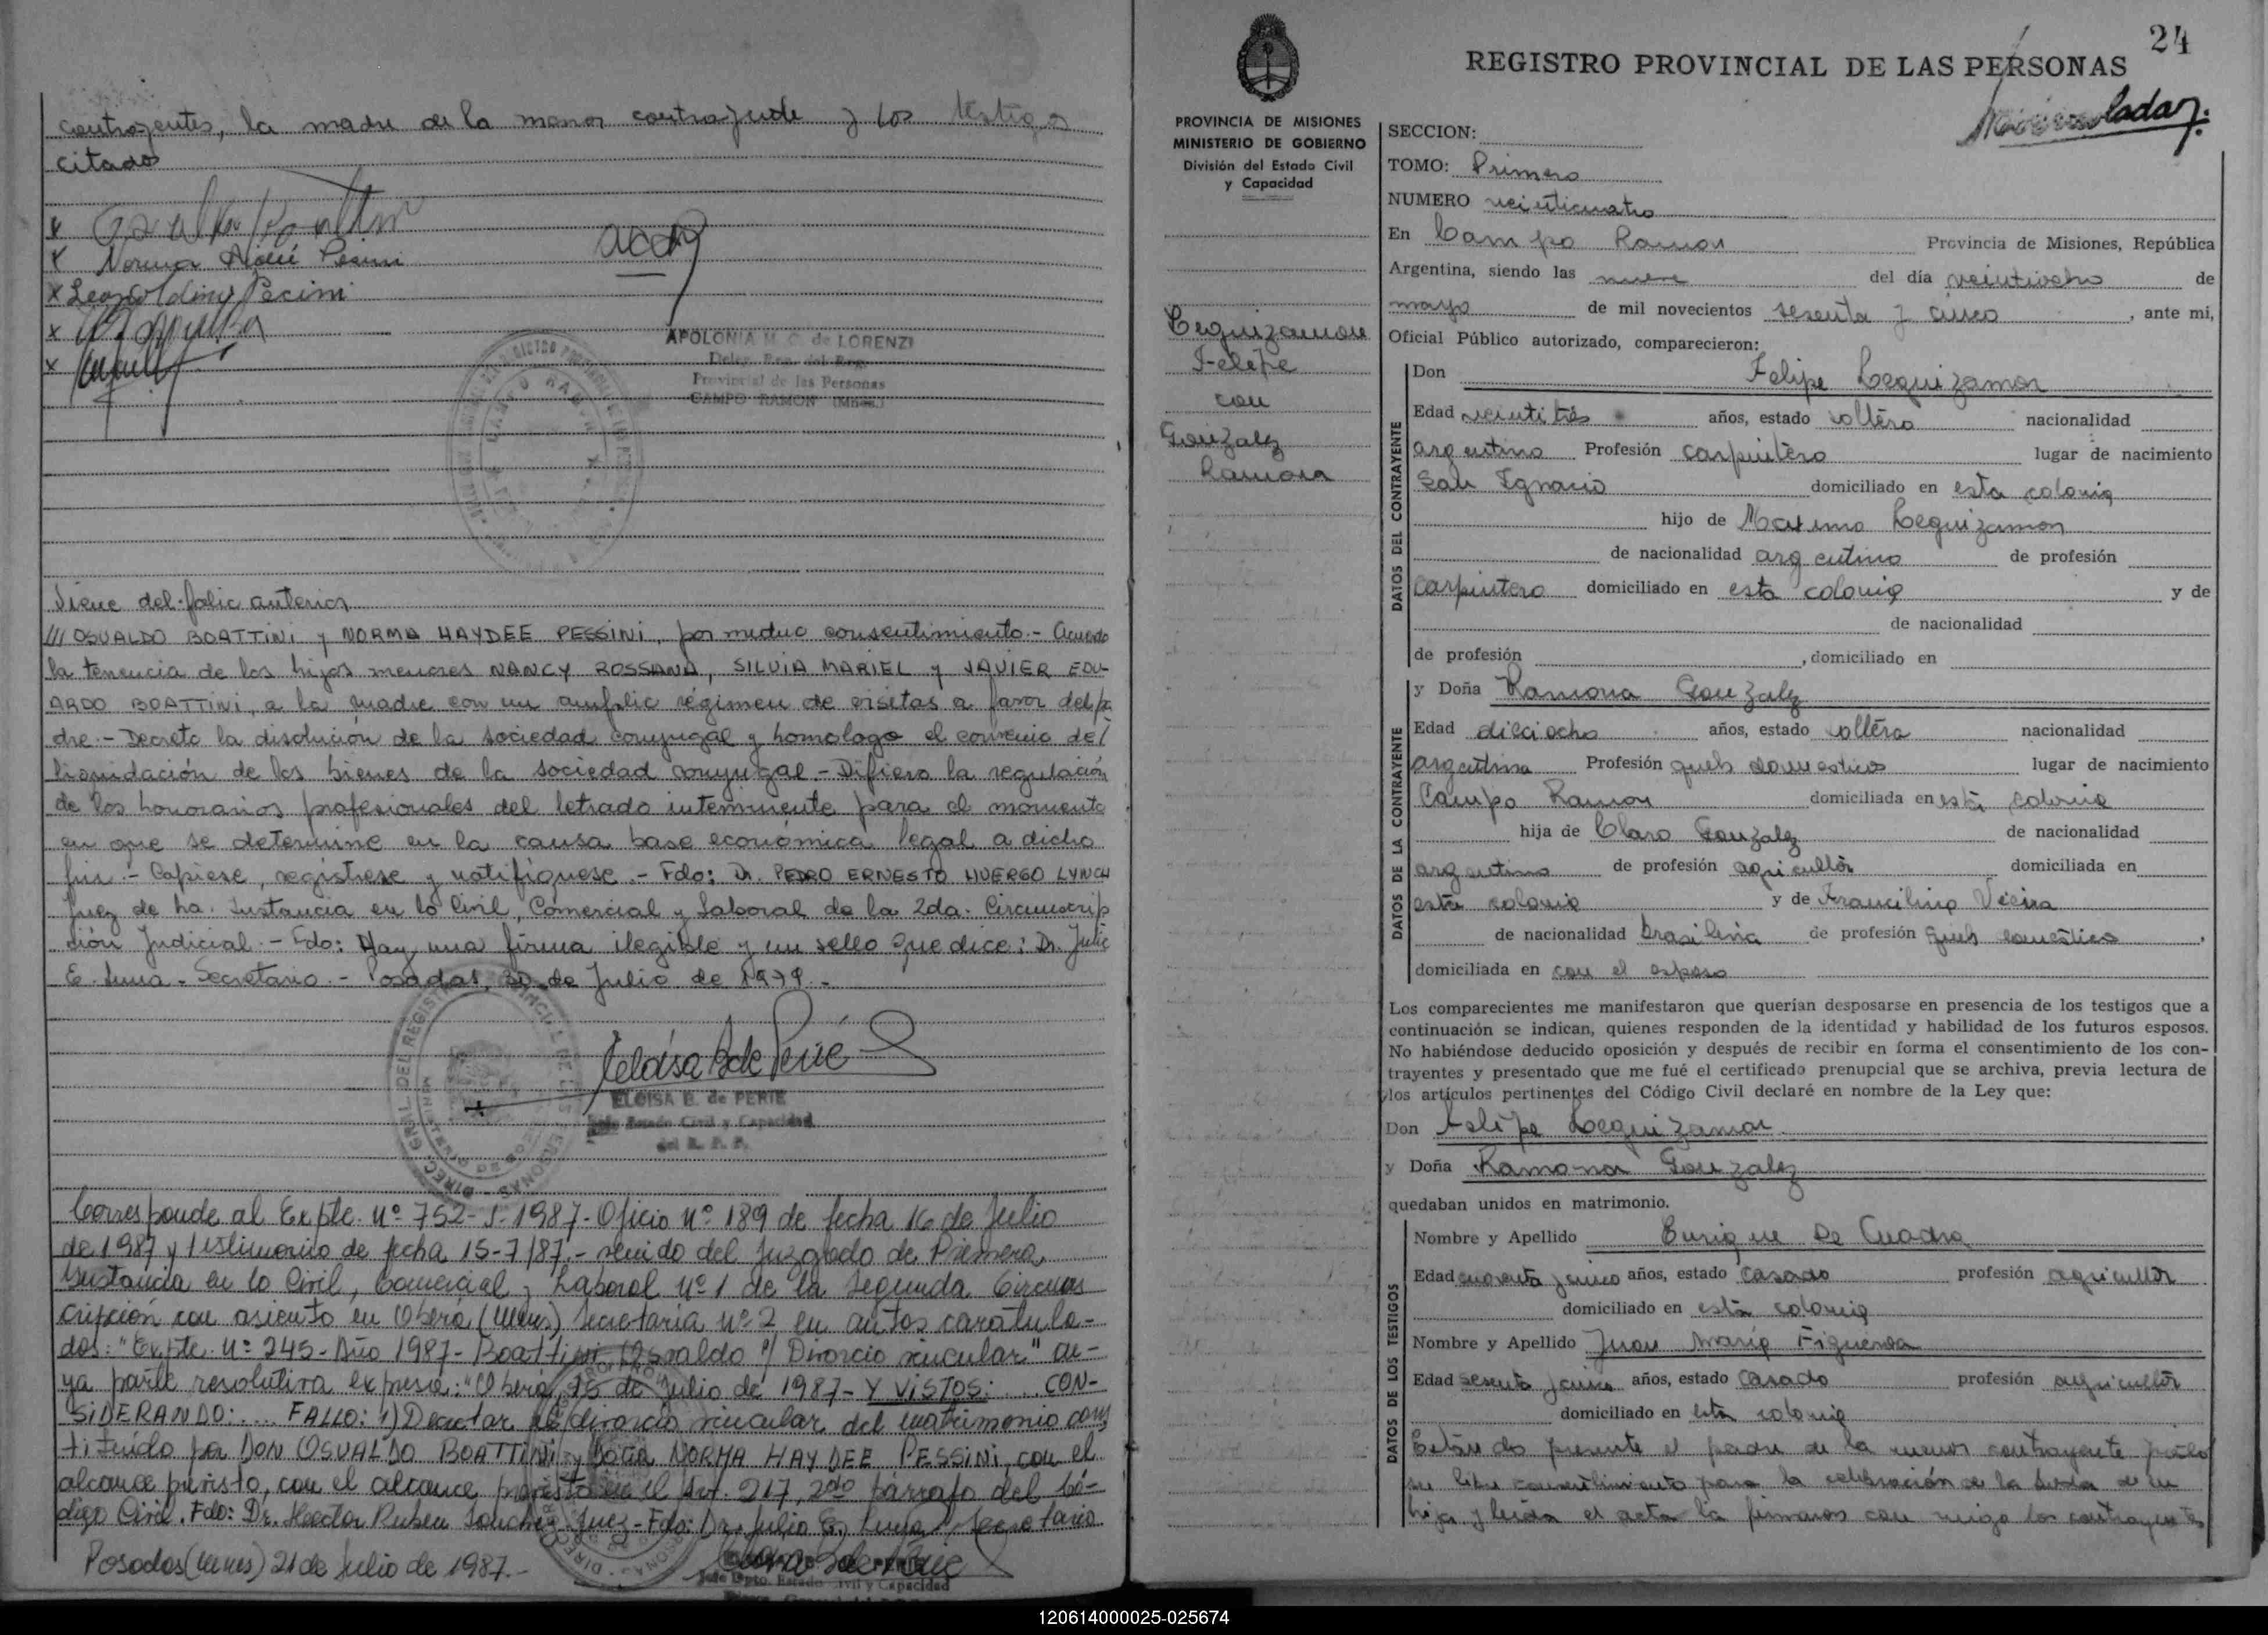 contrayentes, la madre de la menor contrayente y los testigos
citados
x
x Norma Aidée Pesini
x Leopoldina Pecini
x
x
APOLONIA M. C. de LORENZI
Deleg. Enc. del Reg.
Provincial de las Personas
CAMPO RAMON (Mnes.)
Viene del folio anterior
/// OSVALDO BOATTINI y NORMA HAYDEE PESSINI, por mutuo consentimiento.- Acuerdo
la tenencia de los hijos menores NANCY ROSSANA, SILVIA MARIEL y JAVIER EDU-
ARDO BOATTINI, a la madre con un amplio régimen de visitas a favor del pa
dre.- Decreto la disolución de la sociedad conyugal y homologo el convenio de
liquidación de los bienes de la sociedad conyugal - Difiero la regulación
de los honorarios profesionales del letrado interviniente para el momento
en que se determine en la causa base económica legal a dicho
fin.- Copiese, registrese y notifiquese.- Fdo: Dr. PEDRO ERNESTO HUERGO LYNCH
Juez de 1ra. Instancia en lo Civil, Comercial y Laboral de la 2da. Circunscrip
ción Judicial.- Fdo: Hay una firma ilegible y un sello que dice: Dr. Julio
E. Luna - Secretario.- Posadas, 30 de Julio de 1979.-
ELOISA B. de PERIE
Jefe Estado Civil y Capacidad
del R. P. P.
Corresponde al Expte. Nº 752-J-1987- Oficio Nº 189 de fecha 16 de Julio
de 1987 y Testimonio de fecha 15-7/87.- venido del Juzgado de Primera
Instancia en lo Civil, Comercial y Laboral Nº 1 de la Segunda Circuns
cripción con asiento en Oberá (Mnes) Secretaria Nº 2 en autos caratula-
dos: "Expte. Nº 245- Año 1987- Boattini Osvaldo s/ Divorcio vincular" cu-
ya parte resolutiva expresa: "Oberá, 15 de Julio de 1987- Y VISTOS: ... CON-
SIDERANDO: .... FALLO: 1) Decretar el divorcio vincular del matrimonio cons
tituido por DON OSVALDO BOATTINI y Doña NORMA HAYDEE PESSINI, con el
alcance previsto, con el alcance previsto en el Art. 217, 2do párrafo del Có-
digo Civil. Fdo: Dr. Hector Ruben Sanchez Juez - Fdo: Dr. Julio E. Luna Secretario
Posadas (Mnes) 21 de Julio de 1987.-
Jefe Dpto. Estado Civil y Capacidad
24
REGISTRO PROVINCIAL DE LAS PERSONAS
PROVINCIA DE MISIONES
MINISTERIO DE GOBIERNO
División del Estado Civil
y Capacidad
Leguizamon
Felipe
con
Gonzalez
Ramona
SECCION:
TOMO: Primero
NUMERO veinticuatro
En Campo Ramon Provincia de Misiones, República
Argentina, siendo las nueve del día veintiocho de
mayo de mil novecientos sesenta y cinco, ante mi,
Oficial Público autorizado, comparecieron:
DATOS DEL CONTRAYENTE
Don Felipe Leguizamon
Edad veintitrés años, estado soltero nacionalidad
argentino Profesión carpintero lugar de nacimiento
San Ignacio domiciliado en esta colonia
hijo de Maximo Leguizamon
de nacionalidad argentino de profesión
carpintero domiciliado en esta colonia y de
de nacionalidad
de profesión , domiciliado en
DATOS DE LA CONTRAYENTE
y Doña Ramona Gonzalez
Edad dieciocho años, estado soltera nacionalidad
argentina Profesión queh domesticos lugar de nacimiento
Campo Ramon domiciliada en esta colonia
hija de Claro Gonzalez de nacionalidad
argentino de profesión agricultor domiciliada en
esta colonia y de Francilina Vieira
de nacionalidad brasileña de profesión queh domestico,
domiciliada en con el esposo
Los comparecientes me manifestaron que querían desposarse en presencia de los testigos que a
continuación se indican, quienes responden de la identidad y habilidad de los futuros esposos.
No habiéndose deducido oposición y después de recibir en forma el consentimiento de los con-
trayentes y presentado que me fué el certificado prenupcial que se archiva, previa lectura de
los artículos pertinentes del Código Civil declaré en nombre de la Ley que:
Don Felipe Leguizamon
y Doña Ramona Gonzalez
quedaban unidos en matrimonio.
DATOS DE LOS TESTIGOS
Nombre y Apellido Enrique De Cuadra
Edad cuarenta y cinco años, estado casado profesión agricultor
domiciliado en esta colonia
Nombre y Apellido Juan Maria Figueroa
Edad sesenta y cinco años, estado casado profesión agricultor
domiciliado en esta colonia
Estando presente el padre de la menor contrayente presto
su libre consentimiento para la celebración de la boda de su
hija y leida el acta la firmaron con migo los contrayentes
120614000025-025674